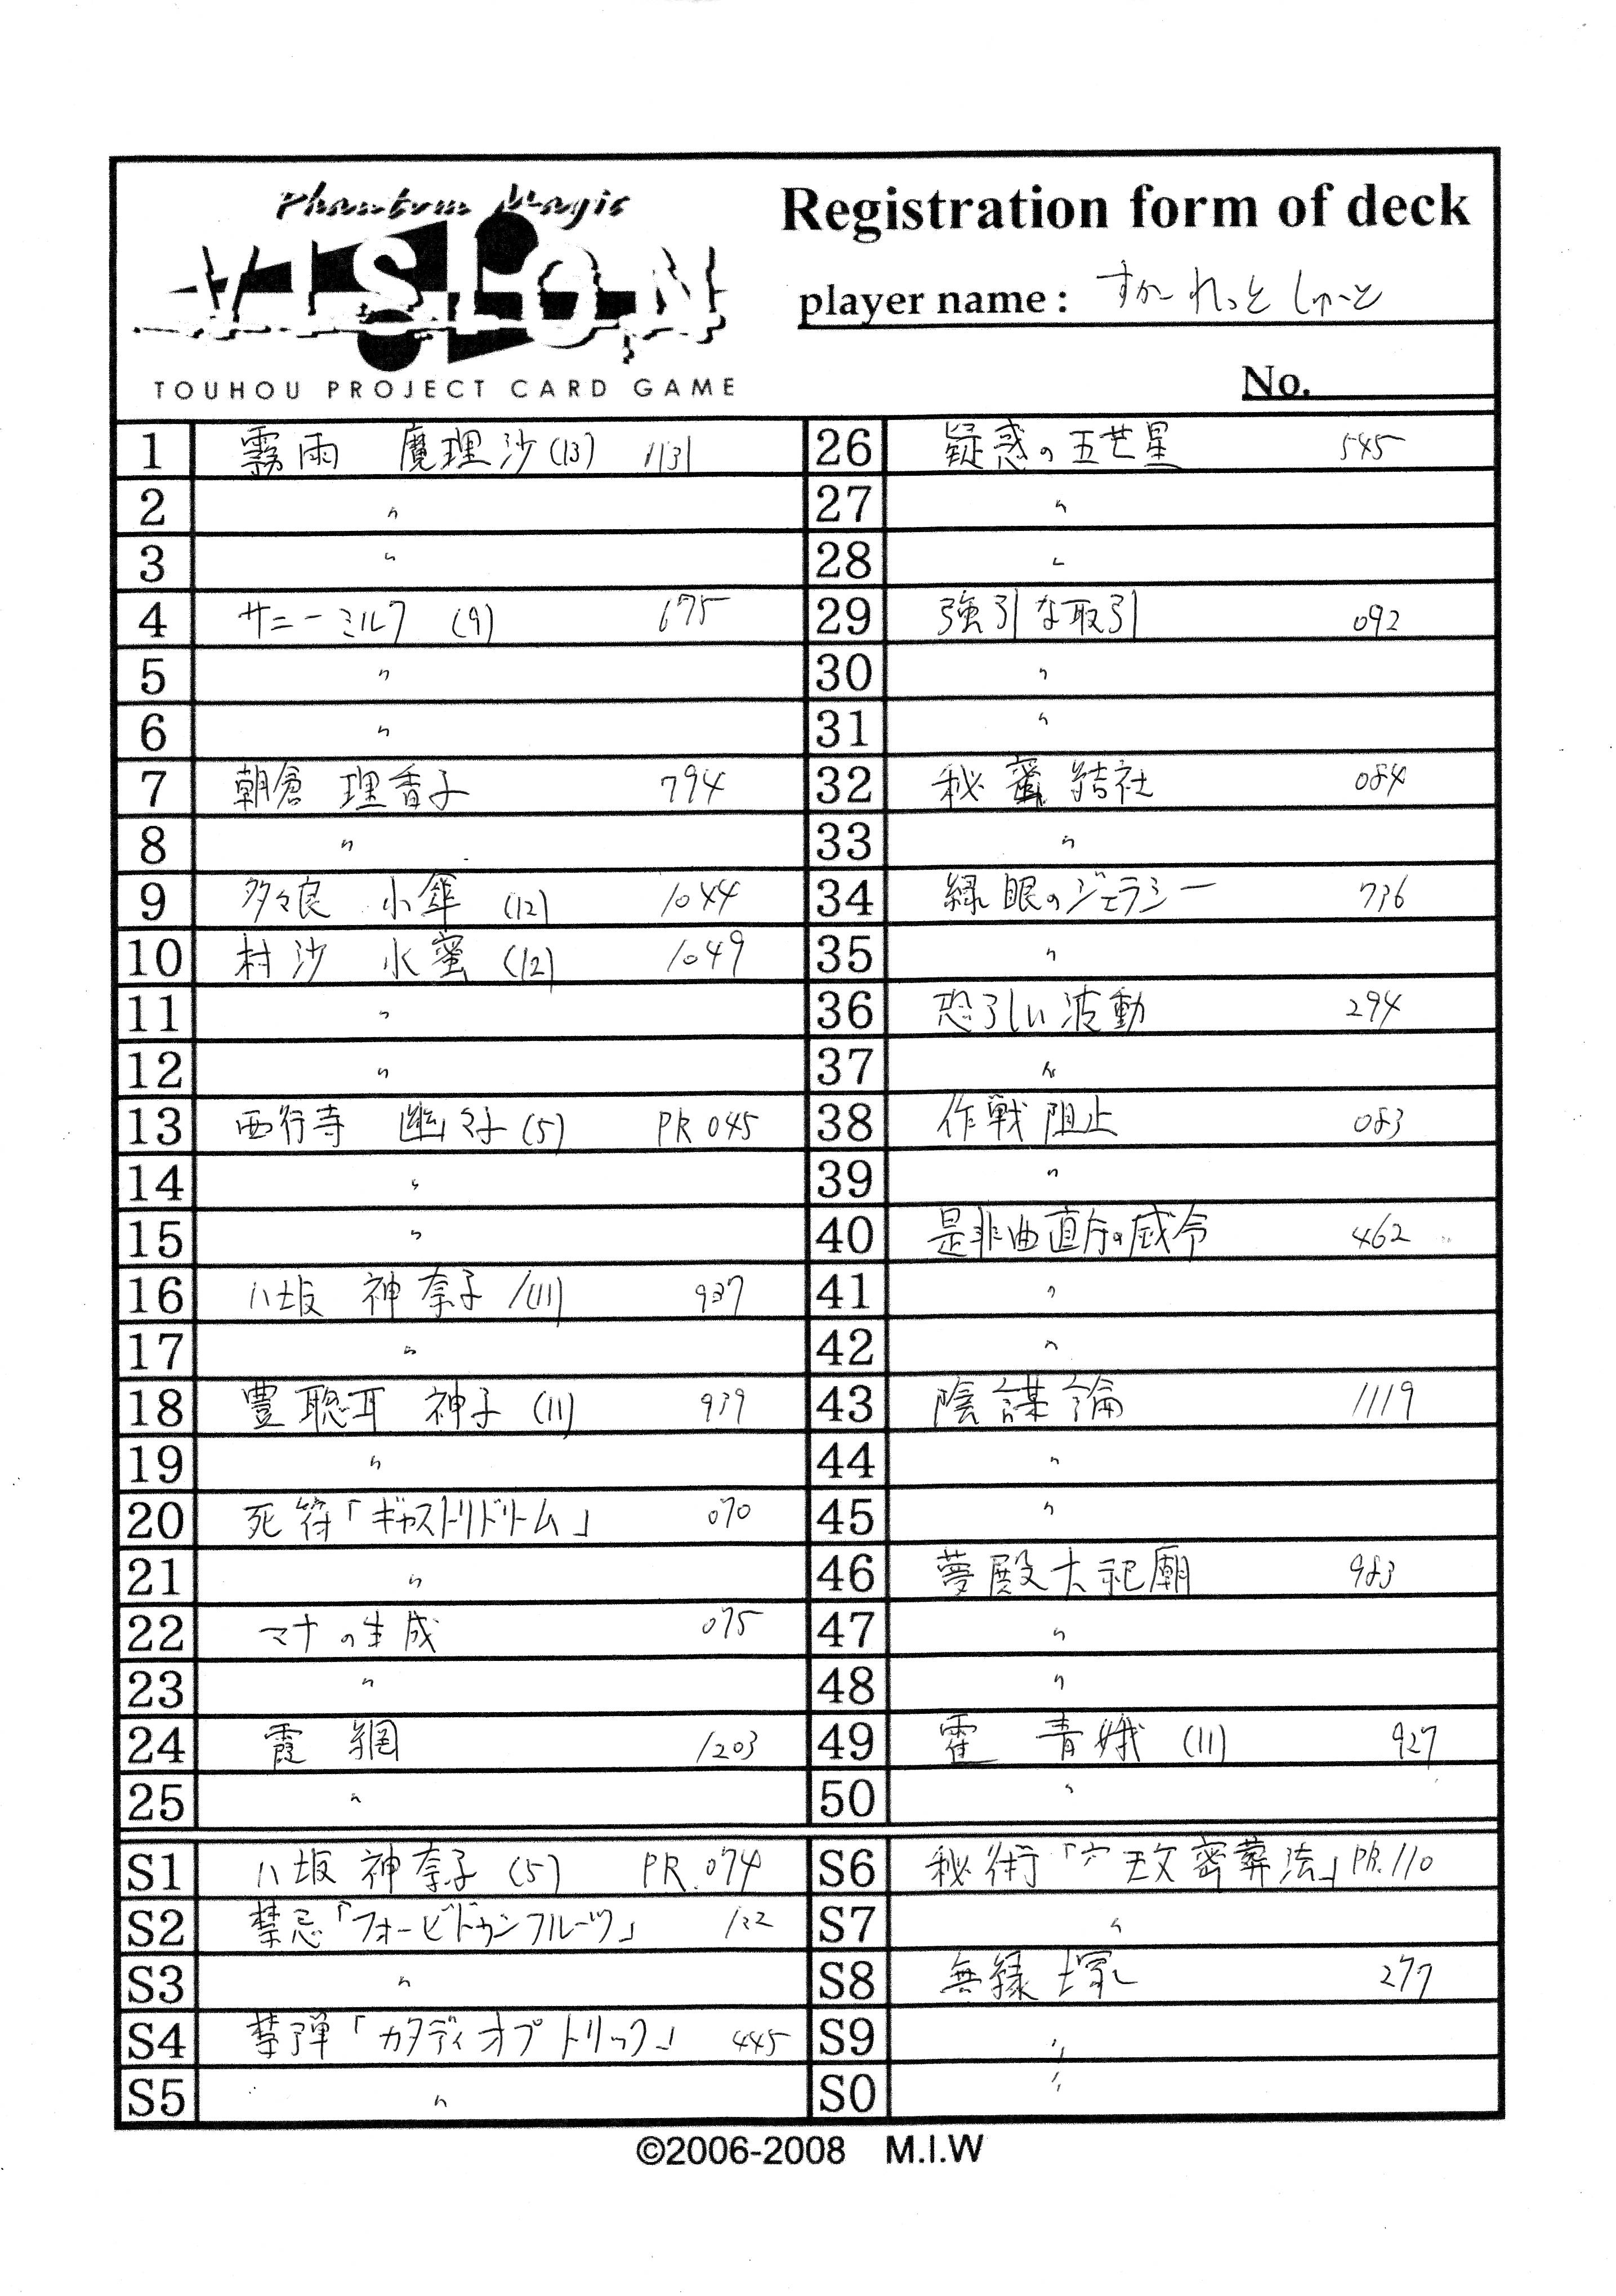 Phantom Magic
VISION
TOUHOU PROJECT CARD GAME
Registration form of deck
player name : すかーれっと しゅーと
No.
1 霧雨 魔理沙 (13) 1131
2 〃
3 〃
4 サニーミルク (9) 675
5 〃
6 〃
7 朝倉 理香子 794
8 〃
9 多々良 小傘 (12) 1044
10 村沙 水蜜 (12) 1049
11 〃
12 〃
13 西行寺 幽々子 (5) PR 045
14 〃
15 〃
16 八坂 神奈子 /(11) 937
17 〃
18 豊聡耳 神子 (11) 939
19 〃
20 死符「ギャストリドリーム」 070
21 〃
22 マナの生成 075
23 〃
24 霞網 1203
25 〃
26 疑惑の五芒星 545
27 〃
28 〃
29 強引な取引 092
30 〃
31 〃
32 秘蜜結社 084
33 〃
34 緑眼のジェラシー 736
35 〃
36 恐ろしい波動 294
37 〃
38 作戦阻止 083
39 〃
40 是非曲直庁の威令 462
41 〃
42 〃
43 陰謀論 1119
44 〃
45 〃
46 夢殿大祀廟 983
47 〃
48 〃
49 霍 青娥 (11) 927
50 〃
S1 八坂 神奈子 (5) PR.074
S2 禁忌「フォービドゥンフルーツ」 132
S3 〃
S4 禁弾「カタディオプトリック」 445
S5 〃
S6 秘術「 密葬法」 PR.110
S7 〃
S8 無縁塚 277
S9 〃
S0 〃
©2006-2008 M.I.W